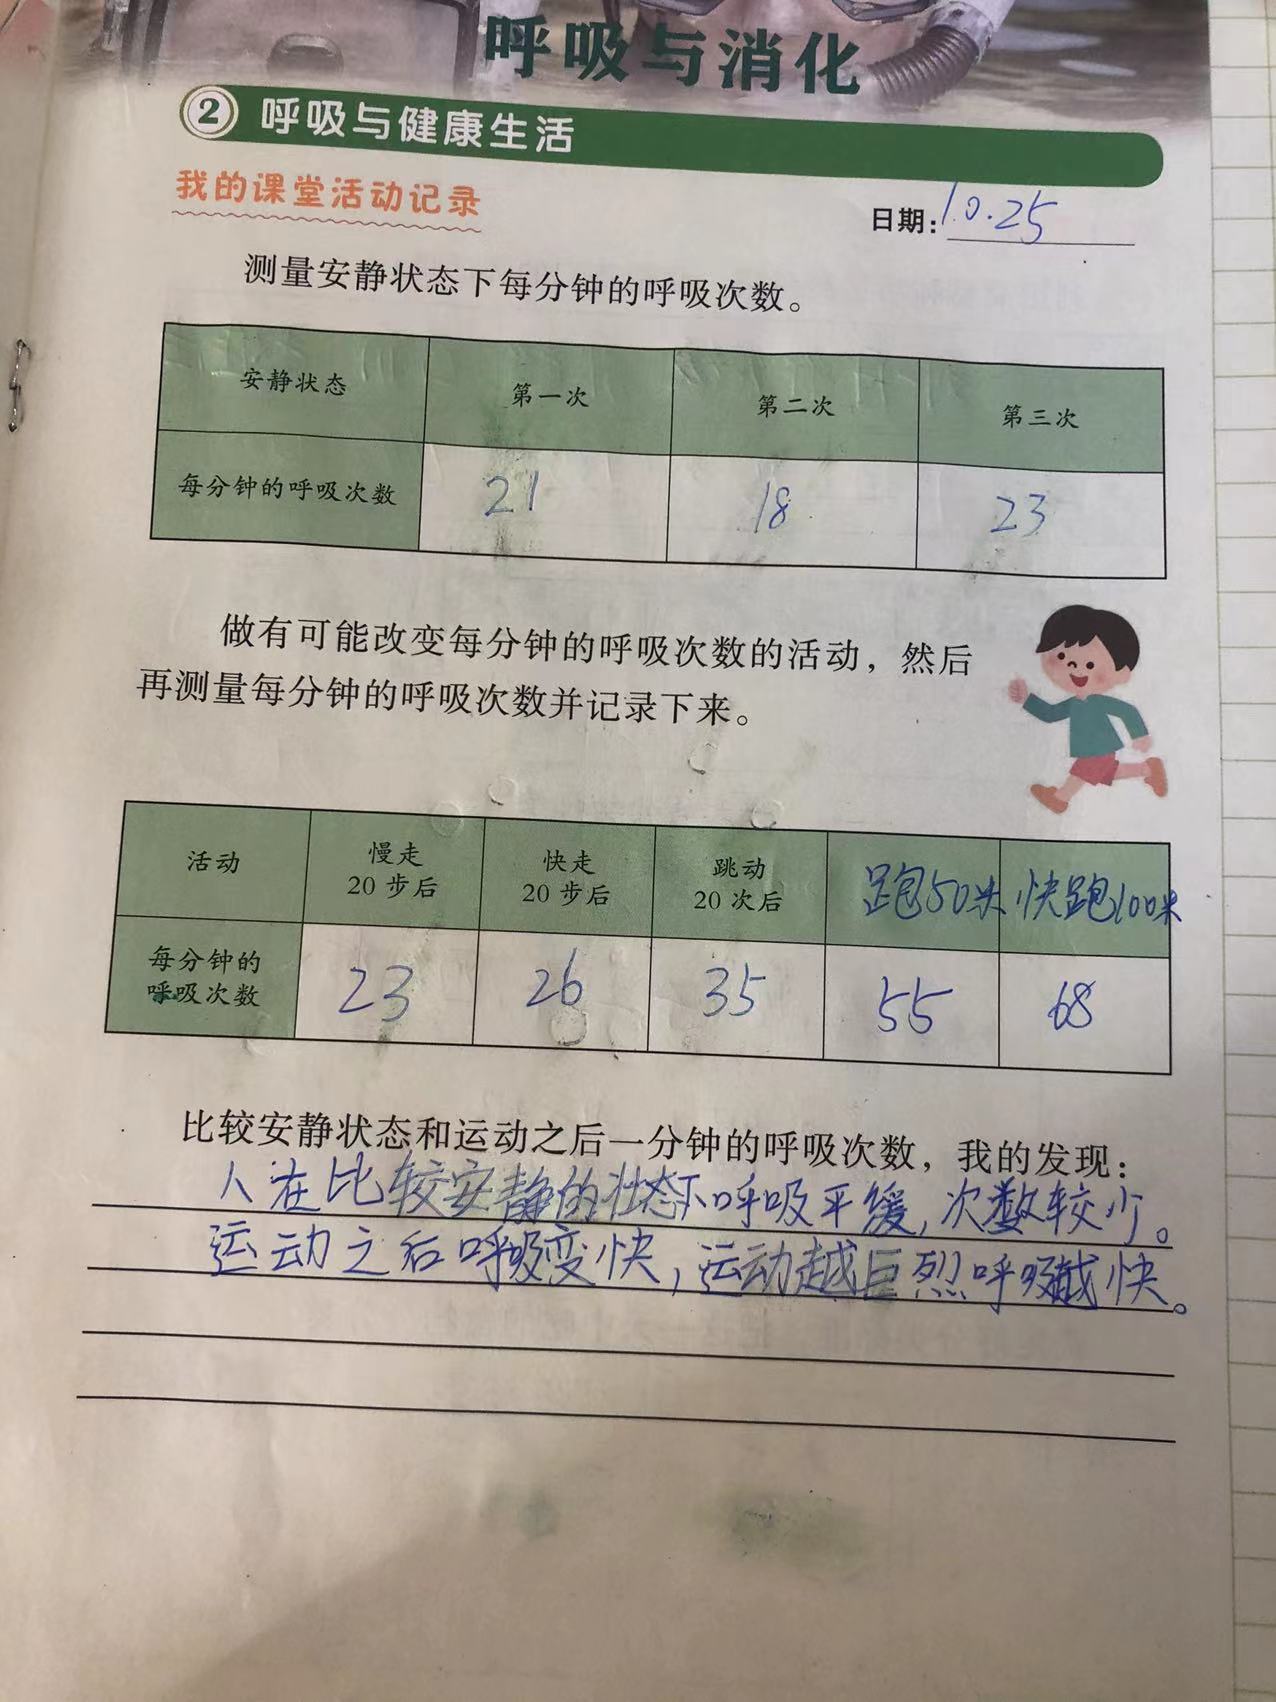 呼吸与消化
② 呼吸与健康生活
我的课堂活动记录
日期：10.25
测量安静状态下每分钟的呼吸次数。
安静状态 第一次 第二次 第三次
每分钟的呼吸次数 21 18 23
做有可能改变每分钟的呼吸次数的活动，然后
再测量每分钟的呼吸次数并记录下来。
活动 慢走 20 步后 快走 20 步后 跳动 20 次后 跑50米 快跑100米
每分钟的呼吸次数 23 26 35 55 68
比较安静状态和运动之后一分钟的呼吸次数，我的发现：
人在比较安静的状态下呼吸平缓，次数较少。
运动之后呼吸变快，运动越巨烈呼吸越快。